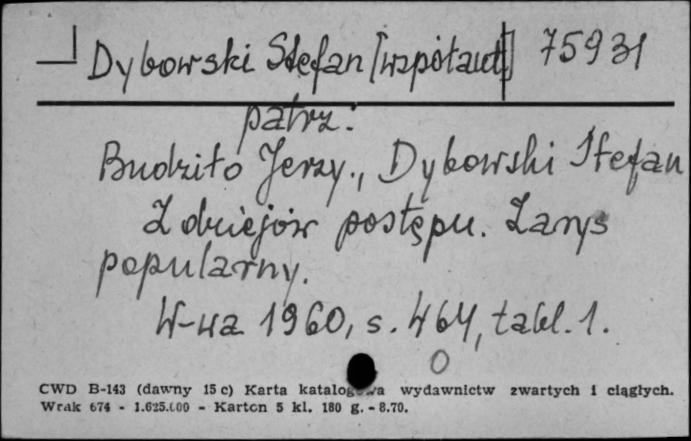 Dybowski Stefan [współaut.] 75931
patrz:
Budziło Jerzy., Dybowski Stefan
Z dziejów postępu. Zarys
popularny.
W-wa 1960, s. 464, tabl. 1.
0
CWD B-143 (dawny 15 c) Karta katalogowa wydawnictw zwartych i ciągłych.
Wrak 674 - 1.625.000 - Karton 5 kl. 180 g. - 8.70.